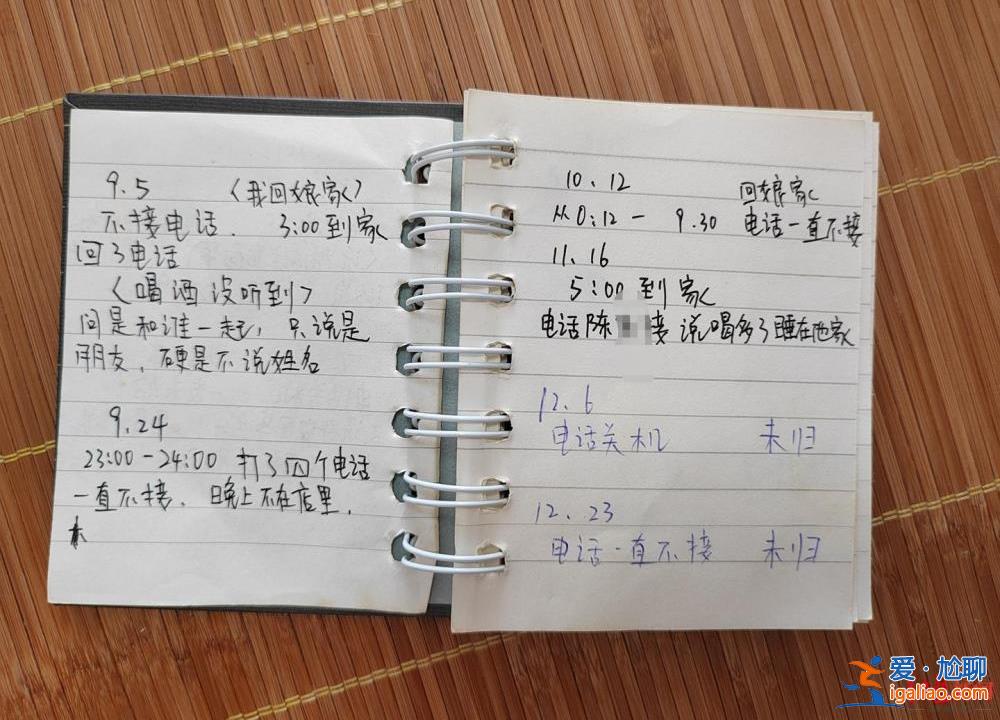 9.5 〈我回娘家〉
不接电话. 3:00到家
回了电话
〈喝酒没听到〉
问是和谁一起, 只说是
朋友, 硬是不说姓名
9.24
23:00-24:00 打了四个电话
一直不接. 晚上不在店里.
10.12 回娘家
从0:12- 9.30 电话一直不接
11.16
5:00到家
电话陈 接 说喝多了睡在他家
12.6
电话关机 未归
12.23
电话一直不接 未归
爱·尬聊
igaliao.com